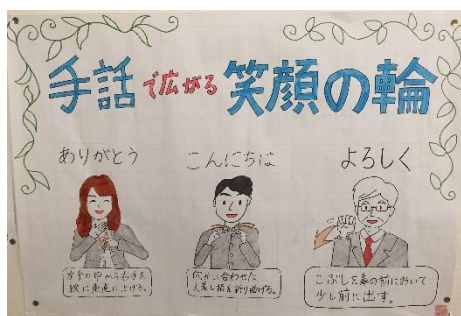 手話で広がる笑顔の輪
ありがとう
こんにちは
よろしく
左手の甲から右手を
縦に垂直に上げる。
向かい合わせた
人差し指を折り曲げる。
こぶしを鼻の前において
少し前に出す。